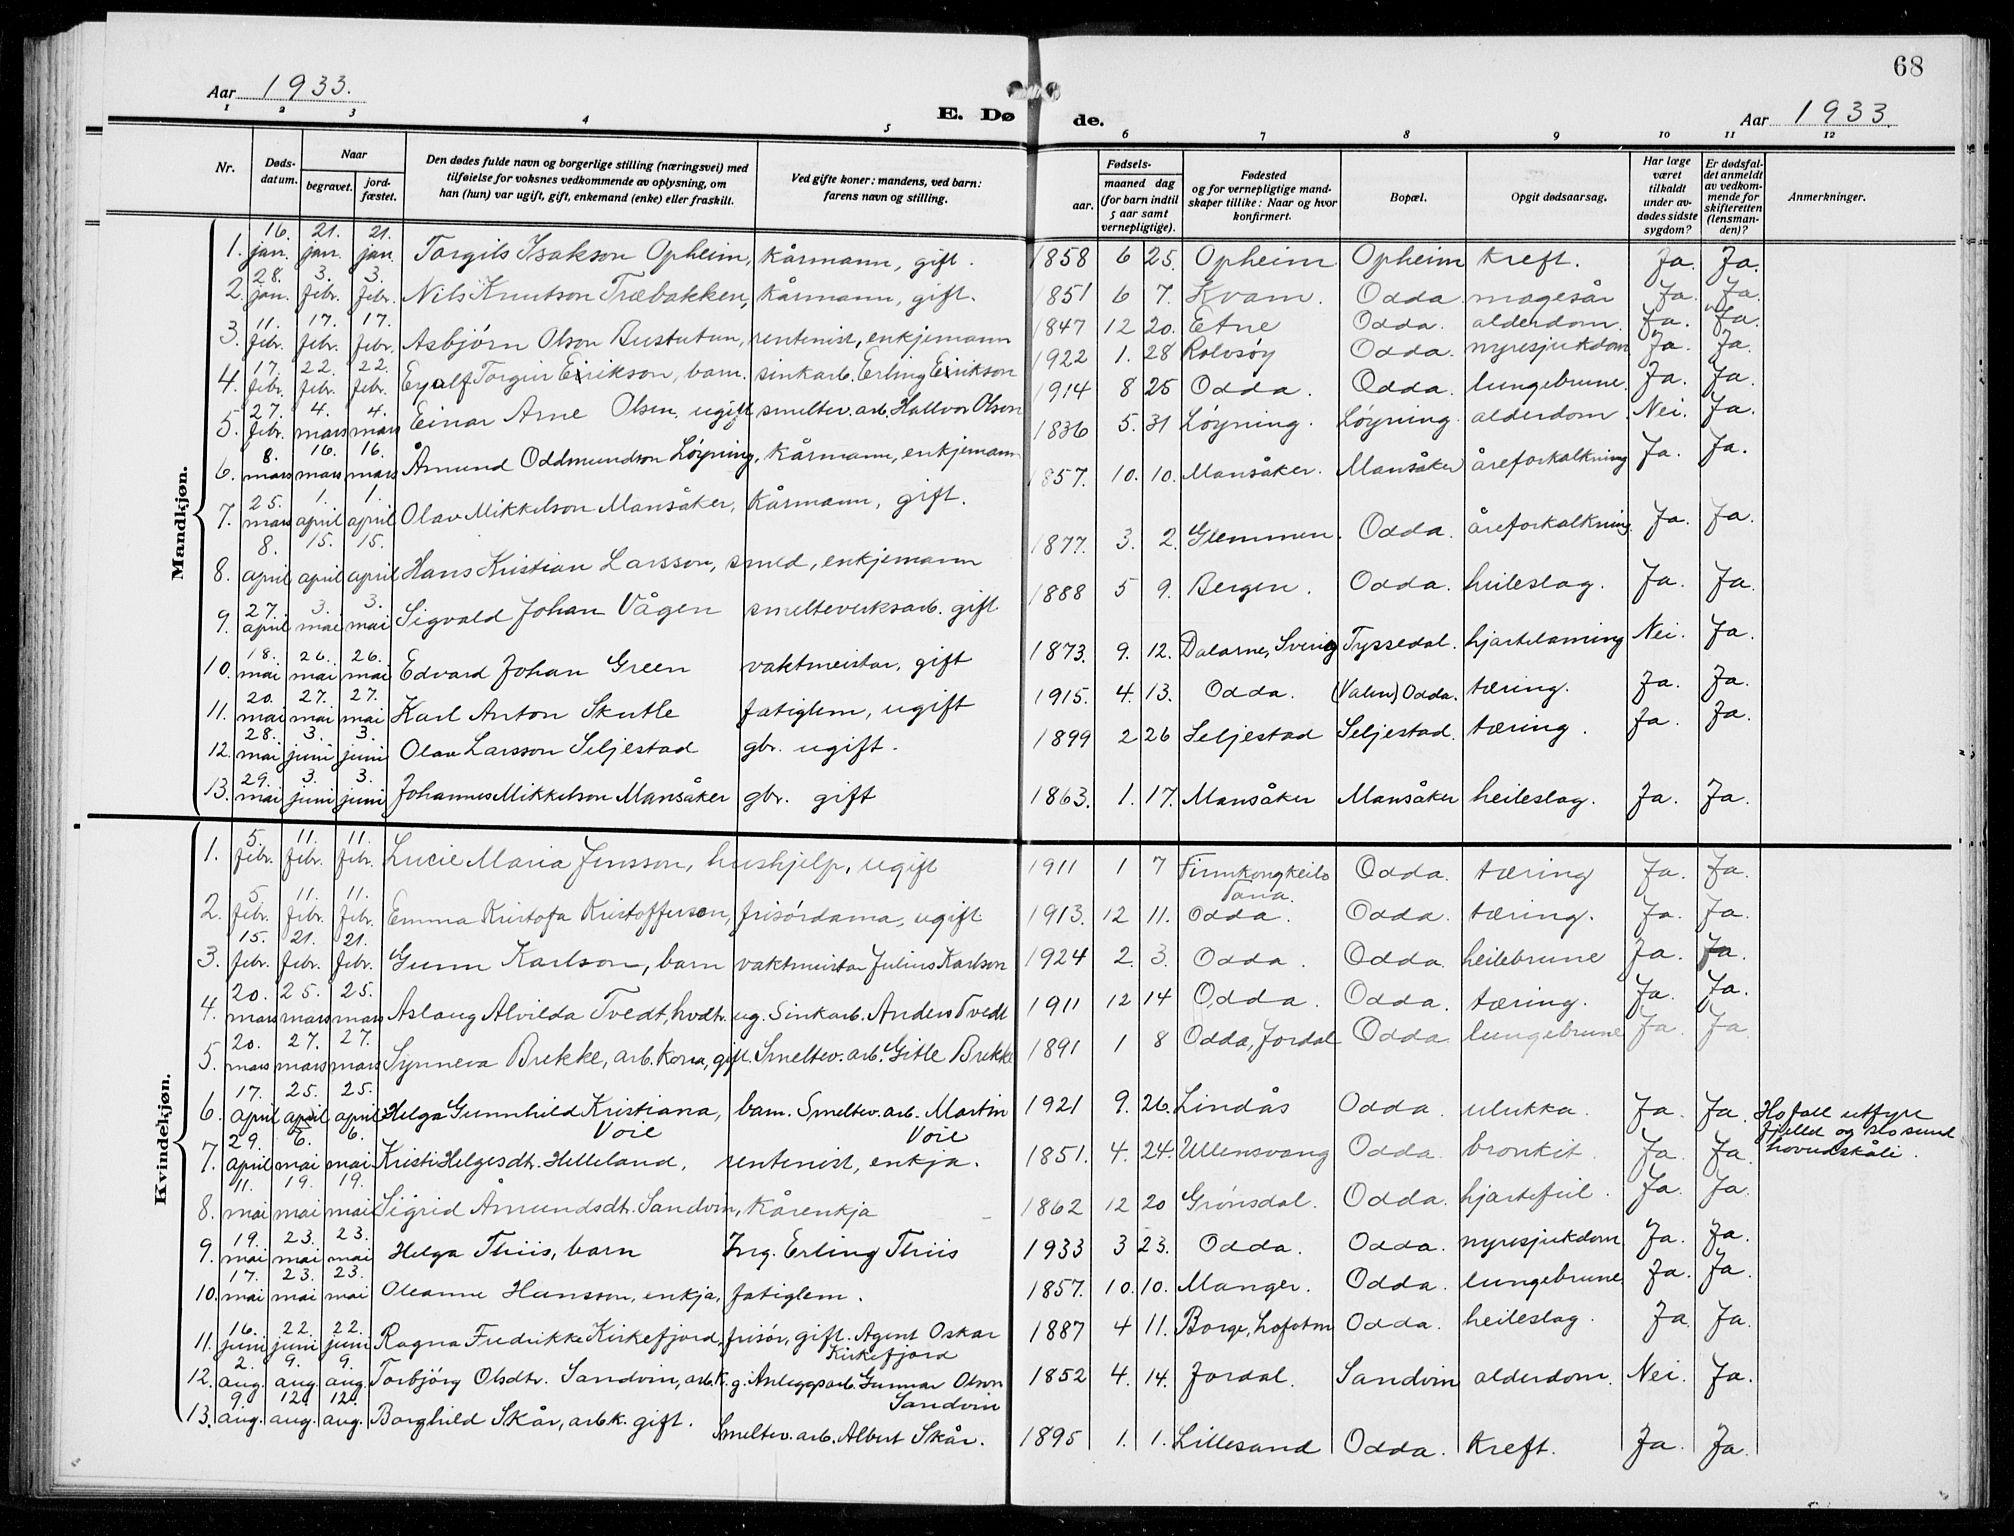 68
Aar 1933.
E. Døde.
Aar 1933.
1 2 3 4 5 6 7 8 9 10 11 12
Nr. | Døds-datum. | Naar begravet. | jord-fæstet. | Den dødes fulde navn og borgerlige stilling (næringsvei) med tilføielse for voksnes vedkommende av oplysning, om han (hun) var ugift, gift, enkemand (enke) eller fraskilt. | Ved gifte koner: mandens, ved barn: farens navn og stilling. | Fødsels- aar. maaned dag (for barn indtil 5 aar samt vernepligtige). | Fødested og for vernepligtige mandskaper tillike: Naar og hvor konfirmert. | Bopæl. | Opgit dødsaarsag. | Har læge været tilkaldt under avdødes sidste sygdom? | Er dødsfaldet anmeldt av vedkommende for skifteretten (lensmanden)? | Anmerkninger.
Mandkjøn.
1. 16. jan. 21. jan. 21. jan. Torgils Isakson Opheim, kårmann, gift. 1858 6 25. Opheim Opheim kreft. Ja. Ja.
2. 28. jan. 3. febr. 3. febr. Nils Knutson Træbakken, kårmann, gift. 1851 6 7. Kvam. Odda. magesår Ja. Ja.
3. 11. febr. 17. febr. 17. febr. Asbjørn Olson Bustutun, rentenist, enkjemann 1847 12 20. Etne Odda. alderdom. Ja. Ja.
4. 17. febr. 22. febr. 22. febr. Eyolf Torgeir Eirikson, barn. sinkarb. Erling Eirikson 1922 1. 28 Rolvsøy Odda. nyresjukdom Ja. Ja.
5. 27. febr. 4. mars 4. mars Einar Arne Olsen, ugift smeltev. arb. Hallvor Olson 1914 8 25 Odda. Odda. lungebrune. Ja. Ja.
6. 8. mars 16. mars 16. mars Åmund Oddmundson Løyning, kårmann, enkjemann 1836 5. 31 Løyning. Løyning. alderdom. Nei. Ja.
7. 25. mars 1. april 1. april Olav Mikkelson Mansåker, kårmann, gift. 1857. 10. 10. Mansåker. Mansåker åreforkalkning Ja. Ja.
8. 8. april 15. april 15. april Hans Kristian Larsson, smed, enkjemann 1877. 3. 2. Glemmen. Odda. åreforkalkning. Ja. Ja.
9. 27. april 3. mai 3. mai Sigvald Johan Vågen smelteverksarb. gift 1888 5 9. Bergen. Odda. heileslag. Ja. Ja.
10. 18. mai 26. mai 26. mai Edvard Johan Green vaktmeistar, gift 1873. 9. 12. Dalarne, Sverig Tyssedal. hjartelaming Nei. Ja.
11. 20. mai 27. mai 27. mai Karl Anton Skutle fatiglem, ugift 1915. 4. 13. Odda. (Valen) Odda. tæring. Ja. Ja.
12. 28. mai 3. juni 3. juni Olav Larsson Seljestad gbr. ugift. 1899 2 26 Seljestad Seljestad. tæring. Ja. Ja.
13. 29. mai 3. juni 3. juni Johannes Mikkelson Mansåker gbr. gift 1863. 1. 17. Mansåker Mansåker heileslag. Ja. Ja.
Kvindekjøn.
1. 5. febr. 11. febr. 11. febr. Lucie Maria Jensson, hushjelp, ugift 1911 1 7 Finnkongkeila Tana. Odda. tæring Ja. Ja.
2. 5. febr. 11. febr. 11. febr. Emma Kristofa Kristofferson, frisørdama, ugift 1913. 12 11. Odda. Odda. tæring. Ja. Ja.
3. 15. febr. 21. febr. 21. febr. Gunn Karlson, barn vaktmeistar Julius Karlson 1924 2. 3. Odda. Odda. heilebrune Ja. Ja.
4. 20. mars 25. mars 25. mars Aslaug Alvilda Tvedt, hvdtr. ug. Sinkarb. Anders Tvedt 1911 12 14 Odda. Odda. tæring. Ja. Ja.
5. 20. mars 27. mars 27. mars Synneva Brekke, arb. kona, gift. Smeltev. arb. Gitle Brekke 1891 1 8 Odda, Jordal Odda lungebrune Ja. Ja
6. 17. april 25. april 25. april Helga Gunnhild Kristiana Voie, barn. Smeltev. arb. Martin Voie 1921 9. 26. Lindås Odda. ulukka. Ja. Ja. Ho fall utfyre fjelled og slo sund hovudskåli.
7. 29. april 6. mai 6. mai Kristi Helgesdt. Helleland, rentenist, enkja. 1851. 4. 24. Ullensvang Odda. bronkit. Ja. Ja.
8. 11. mai 19. mai 19. mai Sigrid Åmundsdt. Sandvin, Kårenkja 1862 12 20 Grønsdal. Odda. hjartefeil. Ja. Ja.
9. 19. mai 23. mai 23. mai Helga Thiis, barn Ing. Erling Thiis 1933 3 23. Odda. Odda. nyresjukdom Ja. Ja.
10. 17. mai 23. mai 23. mai Oleanne Hansson, enkja, fatiglem. 1857. 10. 10. Manger. Odda. lungebrune Ja. Ja.
11. 16. juni 22. juni 22. juni Ragna Fredrikke Kirkefjord, frisør, gift. Agent Oskar Kirkefjord 1887 4 11. Borge, Lofoten Odda. heileslag. Ja. Ja.
12. 2. aug. 9. aug. 9. aug. Torbjørg Olsdtr. Sandvin, arb.k. g. Anleggsarb. Gunnar Olson Sandvin 1852 4. 14. Jordal. Sandvin alderdom. Nei. Ja.
13. 9. aug. 12. aug. 12. aug. Borghild Skår, arb.k. gift. Smeltev. arb. Albert Skår. 1895 1. 1. Lillesand Odda. kreft. Ja. Ja.